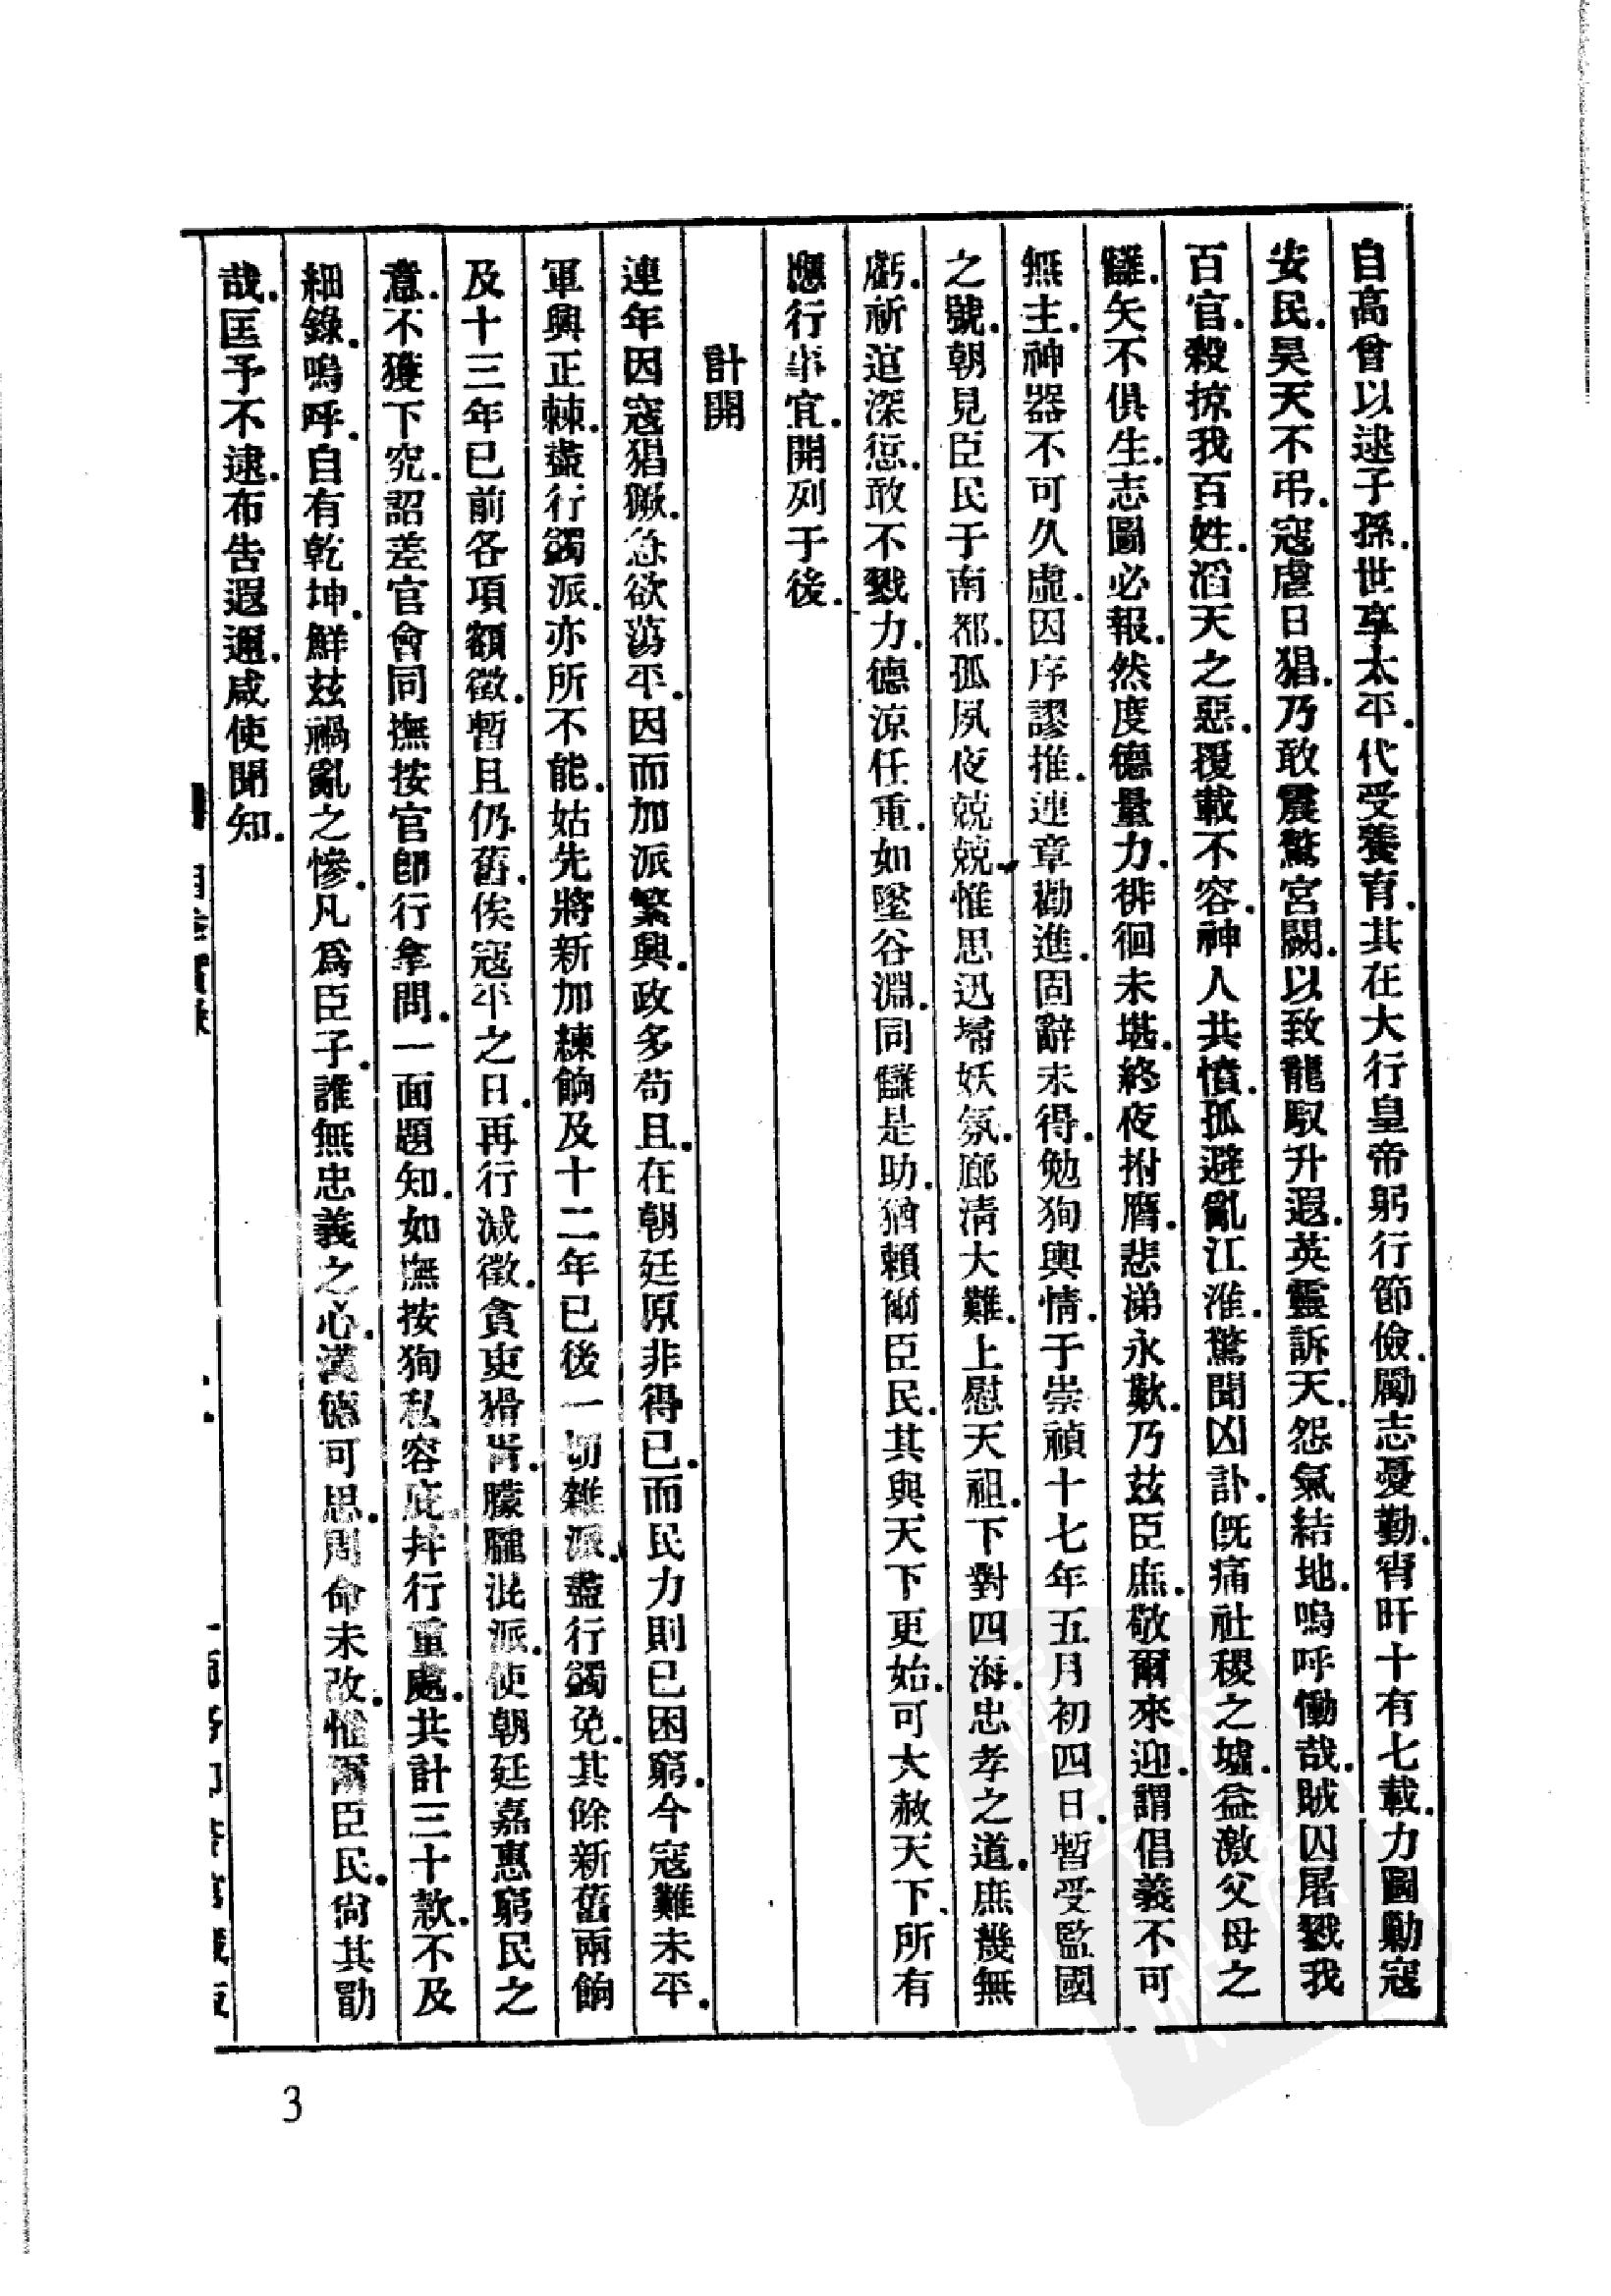 自高曾以逮子孫.世享太平.代受養育.其在大行皇帝躬行節儉.勵志憂勤.宵旰十有七載.力圖勦寇
安民.昊天不弔.寇虐日猖.乃敢震驚宮闕.以致龍馭升遐.英靈訴天.怨氣結地.嗚呼慟哉.賊囚屠戮我
百官.殺掠我百姓.滔天之惡.覆載不容.神人共憤.孤避亂江淮.驚聞凶訃.旣痛社稷之墟.益激父母之
讎.矢不俱生.志圖必報.然度德量力.徘徊未堪.終夜拊膺.悲涕永歎.乃茲臣庶.敬爾來迎.謂倡義不可
無主.神器不可久虛.因序謬推.連章勸進.固辭未得.勉狥輿情.于崇禎十七年五月初四日.暫受監國
之號.朝見臣民于南都.孤夙夜兢兢.惟思迅埽妖氛.廓清大難.上慰天祖.下對四海.忠孝之道.庶幾無
虧.祈逭深愆.敢不戮力.德涼任重.如墜谷淵.同讎是助.猶賴爾臣民.其與天下更始.可大赦天下.所有
應行事宜.開列于後.
計開
連年因寇猖獗.急欲蕩平.因而加派繁興.政多苟且.在朝廷原非得已.而民力則已困窮.今寇難未平.
軍興正棘.盡行蠲派.亦所不能.姑先將新加練餉及十二年已後一切雜派.盡行蠲免.其餘新舊兩餉
及十三年已前各項額徵.暫且仍舊.俟寇平之日.再行減徵.貪吏猾胥.朦朧混派.使朝廷嘉惠窮民之
意.不獲下究.詔差官會同撫按官卽行拿問.一面題知.如撫按狥私容庇.幷行重處.共計三十款.不及
細錄.嗚呼.自有乾坤.鮮茲禍亂之慘.凡爲臣子.誰無忠義之心.漢德可思.周命未改.惟爾臣民.尙其勖
哉.匡予不逮.布告遐邇.咸使聞知.
3